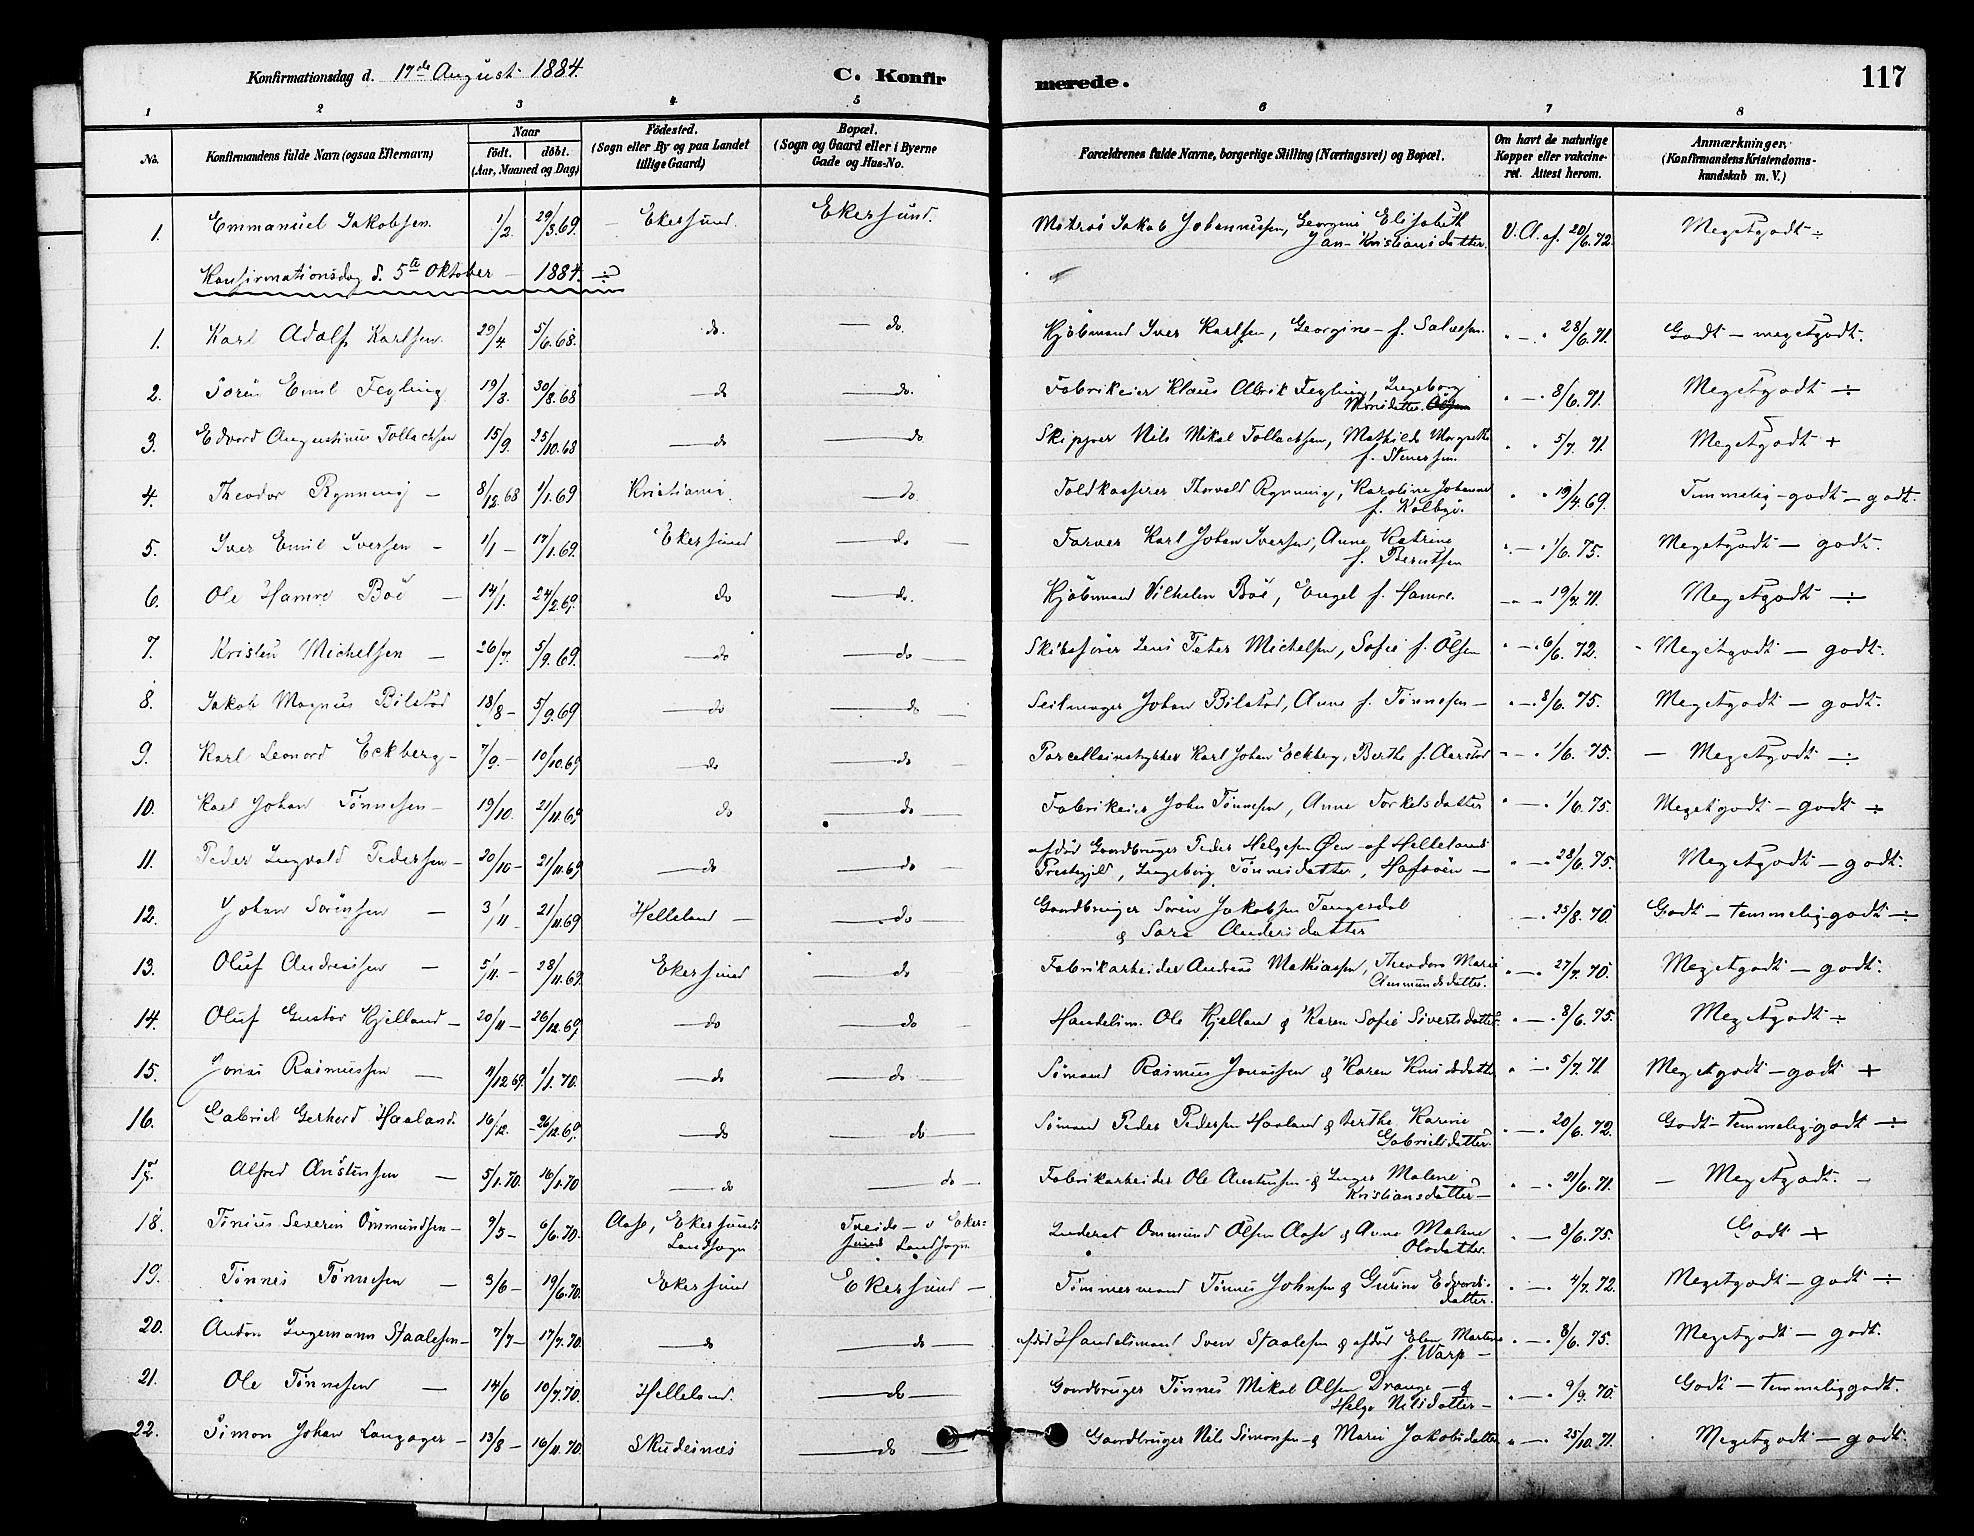 Konfirmationsdag d. 17de August 1884. C. Konfir merede. 117
1 2 3 4 5 6 7 8
No. Konfirmandens fulde Navn (ogsaa Efternavn) Naar födt. döbt. (Aar, Maaned og Dag) Födested. (Sogn eller By og paa Landet tillige Gaard) Bopæl. (Sogn og Gaard eller i Byerne Gade og Hus-No. Forældrenes fulde Navne, borgerlige Stilling (Næringsvei) og Bopæl. Om havt de naturlige Kopper eller vakcineret. Attest herom. Anmærkninger. (Konfirmandens Kristendomskundskab m. V.)
1. Emmanuel Jakobsen. 1/2. 29/3.69. Ekersund. Ekersund. Matros Jakob Johannessen, Georgine Elisabeth V. A. af. 20/6.72. Megetgodt ÷
Jan-Kristiansdatter.
Konfirmationsdag d. 5te Oktober – 1884. ÷
1. Karl Adolf Karlsen. 29/4. 5/6.68. do. — do. Kjöbmand Iver Karlsen, Georgine f. Salvesen. " — " 28/6.71. Godt – megetgodt.
2. Sören Emil Feyling 19/3. 30/8.68 — do — do. Fabrikeier Klaus Alrik Feyling, Ingeborg " — " 8/6.71. Megetgodt ÷
Monsdatter
3. Edvard Augustinus Tollachsen 15/9. 25/10.68 — do — do Skipper Nils Mikal Tollachsen, Mathilde Margrethe " " 5/7 71. Megetgodt +
f. Stenersen.
4. Theodor Rynning – 8/12.68 1/1.69 Kristiania. — do. Toldkasserer Thorvald Rynning, Karoline Johanne " " 19/4.69. Temmelig-godt – godt.
f. Kolbye.
5. Iver Emil Iversen – 1/1 – 17/1.69. Ekersund — do — Farver Karl Johan Iversen, Anne Katrine " — " 1/6.75. Megetgodt – godt.
f. Berntsen
6. Ole Hamre Böe – 14/1. 24/2.69. do — do. Kjöbmand Vilhelm Böe, Engel f. Hamre. — " 19/7.71. Megetgodt ÷
7. Kristen Michelsen – 26/7. 5/9.69. — do — do — Skibsförer Jens Peter Michelsen, Sofie f. Olsen " — " 6/6.72. Megetgodt – godt.
8. Jakob Magnus Bilstad 18/8 – 5/9.69 — do — do — Seilmager Johan Bilstad, Anne f. Tönnesen – " — " 8/6.75. Megetgodt – godt.
9. Karl Leonard Eckberg – 7/9. – 10/10.69 — do — do — Porcellainstrykker Karl Johan Eckberg, Berthe f. Aarstad " — " 1/6.75. – Megetgodt ÷
10. Karl Johan Tönnesen – 19/10. 21/11.69 do — do — Fabrikeier John Tönnesen, Anne Torkelsdatter " — " 1/6.75. Megetgodt – godt ÷
11. Peder Ingvald Pedersen – 20/10 – 21/11.69 — do — do — afdöd Gaardbruger Peder Helgesen Öen – af Helleland " — " 28/6.75. Megetgodt – godt.
Prestegjeld, Ingeborg Tönnesdatter, Hafsöen –
12. Johan Sörensen – 3/11 – 21/11.69 Helleland – — do Gaardbruger Sören Jakobsen Tengesdal — " 25/8.70. Godt – temmelig-godt ÷
& Sara Andersdatter
13. Oluf Andreasen – 5/11. – 28/11.69. Ekersund — do Fabrikarbeider Andreas Mathiassen, Theodora Marie " — " 27/7.70. Megetgodt – godt.
Aanmundsdatter.
14. Oluf Gustav Kjelland – 20/11 – 26/12.69. — do — do — Handelsm. Ole Kjelland & Karen Sofie Sivertsdatter. " — " 8/6.75. Megetgodt ÷
15. Jonas Rasmussen – 11/12 69. 1/1.70. — do — do — Sömand Rasmus Jonassen & Karen Knudsdatter " — " 5/7.71 Megetgodt – godt +
16. Gabriel Gerhard Haaland. 16/12. 26/12.69. — do — do — Sömand Peder Pedersen Haaland & Berthe Karine " — " 20/6.72. Godt – temmelig-godt ÷
Gabrielsdatter.
17. Alfred Austensen – 5/1.70. 16/1.70 — do — do – Fabrikarbeider Ole Austensen & Inger Malene " — " 21/6.71. – Megetgodt. –
Kristiansdatter –
18. Tönnes Severin Ommundsen – 9/5 – 6/6.70. Aase, Ekersunds Landsogn Treide – i Ekersund Landsogn. Inderst Ommund Olsen Aase & Anne Malene " — " 8/6.75. Godt +
Olsdatter.
19. Tönnes Tönnesen – 3/6 – 19/6.70. Ekersund Ekersund – Tömmermand Tönnes Johnsen & Gurine Edvards- " — " 4/7.72. Megetgodt – godt ÷
datter.
20. Anton Ingemann Staalesen – 7/7 – 17/7.70. — do — do — afdöd Handelsmand Sven Staalesen & afdöd Elen Martine " — " 8/6.75. Megetgodt – godt.
f. Warp –
21. Ole Tönnesen – 14/6 10/7.70. Helleland. — do — Gaardbruger Tönnes Mikal Olsen Drange – & " — " 9/9.70. Godt – temmeliggodt.
Helge Nilsdatter –
22. Simon Johan Langager – 13/8 – 16/11.70. Skudesnæs — do — Gaardbruger Nils Simonsen & Marie Jakobsdatter " — " 25/10.71. Megetgodt – godt